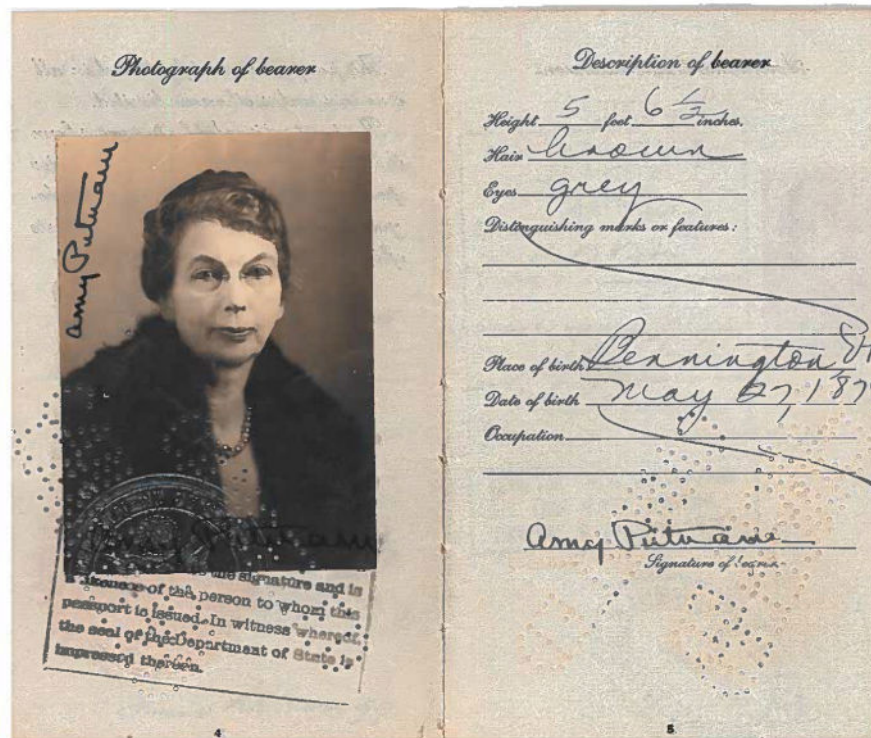 Photograph of bearer
Amy Putnam
Amy Putnam
the signature and is
a likeness of the person to whom this
passport is issued. In witness whereof,
the seal of the Department of State is
impressed thereon.
4
Description of bearer
Height 5 feet 6 1/2 inches.
Hair brown
Eyes grey
Distinguishing marks or features:
Place of birth Bennington Vt
Date of birth May 27, 187
Occupation
Amy Putnam
Signature of bearer.
5